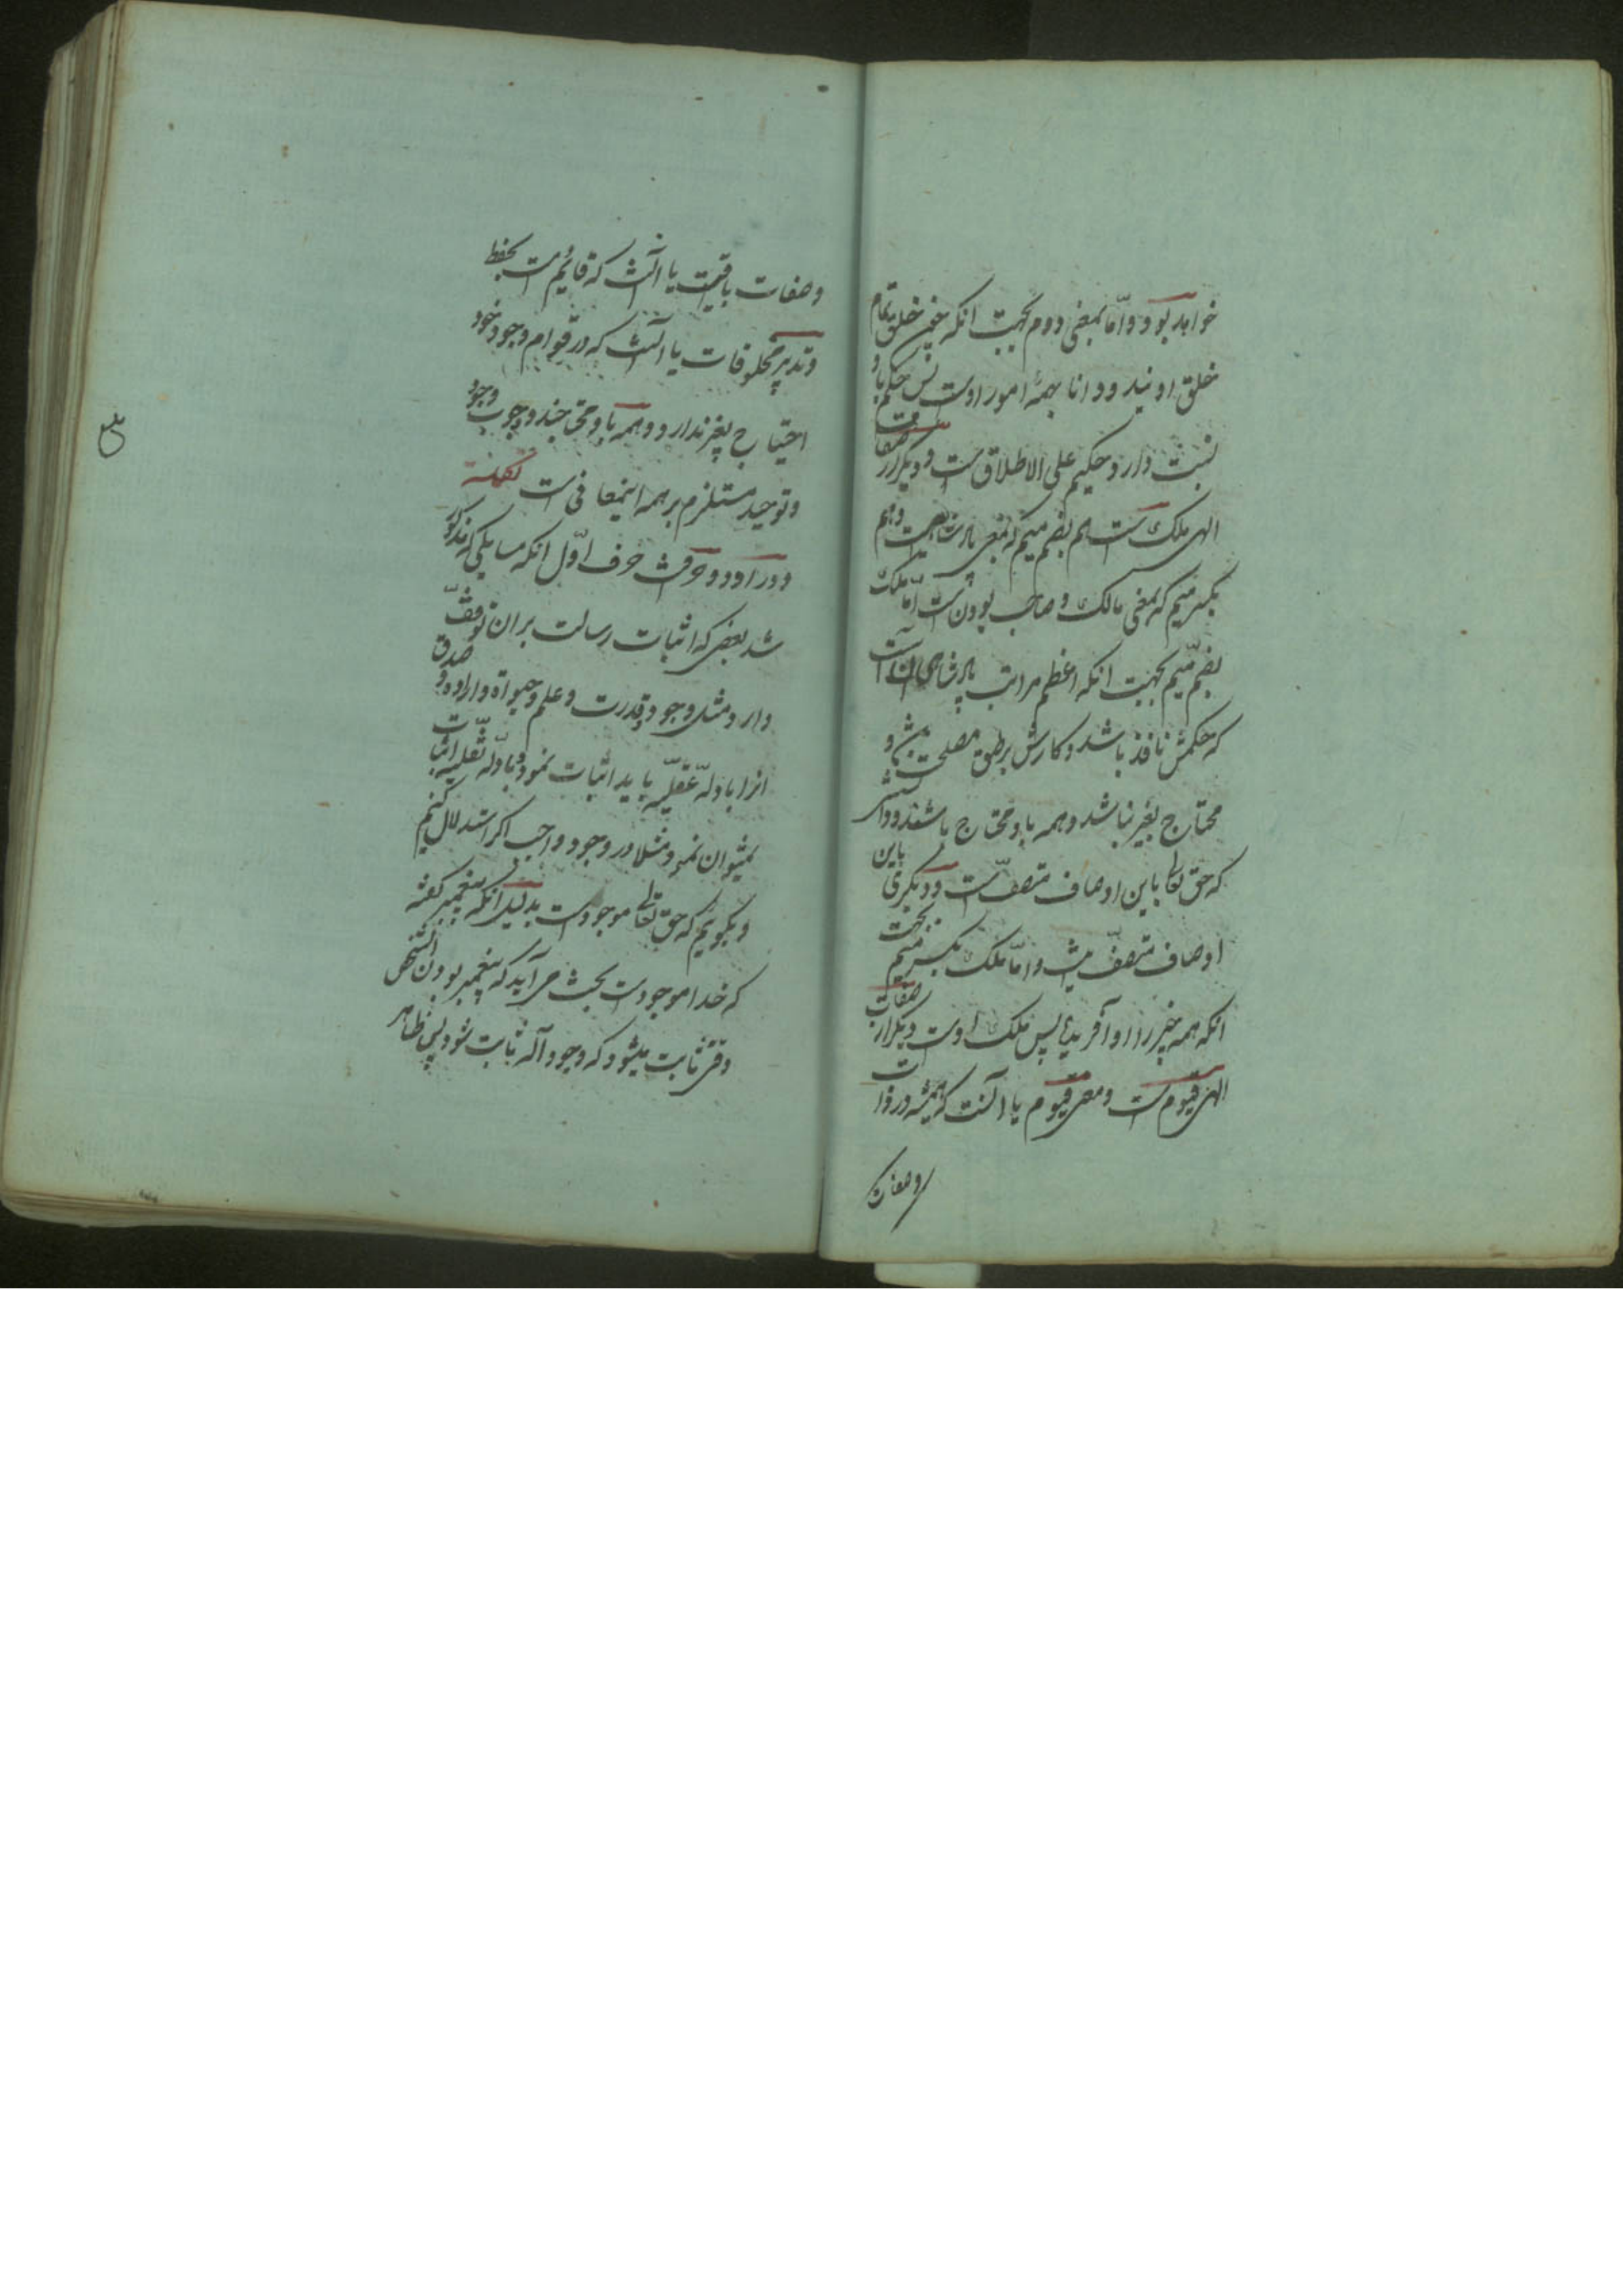 خواهد بود و امّا بمعنی دوم بجهت انکه چون خلق تمام
خلق اویند و دانا بهمهٔ امور اوست پس حکم باو
نسبت دارد و حکیم علی الاطلاق است و دیکر از صفات
الهی ملک است هم بضم میم که بمعنی پادشاهیست و هم
بکسر میم که بمعنی مالک و صاحب بودن است امّا ملک
بضمّ میم بجهت انکه اعظم مراتب پادشاهی آنست
که حکمش نافذ باشد و کارش بر طبق مصلحت و
محتاج بغیر نباشد و همه باو محتاج باشند و دانستی
که حق تعالی باین اوصاف متصفّ است و دیکری باین
اوصاف متصفّ نیست و امّا ملک بکسر میم بجهت
انکه همه چیز را او آفریده پس ملک اوست دیکر از صفات
الهی قیّوم است و معنی قیّوم یا آنست که همیشه در ذات
وصفات
وصفات باقیست یا آنست که قائم است بحفظ
و تدبیر مخلوقات یا آنست که در قوام وجود خود
احتیاج بغیر ندارد و همه باو محتاجند و وجوب وجود
و توحید مستلزم بر همه اینمعانی است تکمله
و در او دو حرفست حرف اوّل انکه مسایلی که مذکور
شد بعضی که اثبات رسالت بران توقفّ
دارد مثل وجود و قدرت و علم و حیوة و اراده و صدق
انرا بادلّهٔ عقلیّه باید اثبات نمود و بادلّه نقلیّه اثبات
نمیتوان نمود مثلا در وجود واجب اکر استدلال کنیم
و بکوییم که حق تعالی موجودست بدلیل انکه پیغمبر کفته
که خدا موجودست بحث می آید که پیغمبر بودن انشخص
وقتی ثابت میشود که وجود آله ثابت شود پس ظاهر